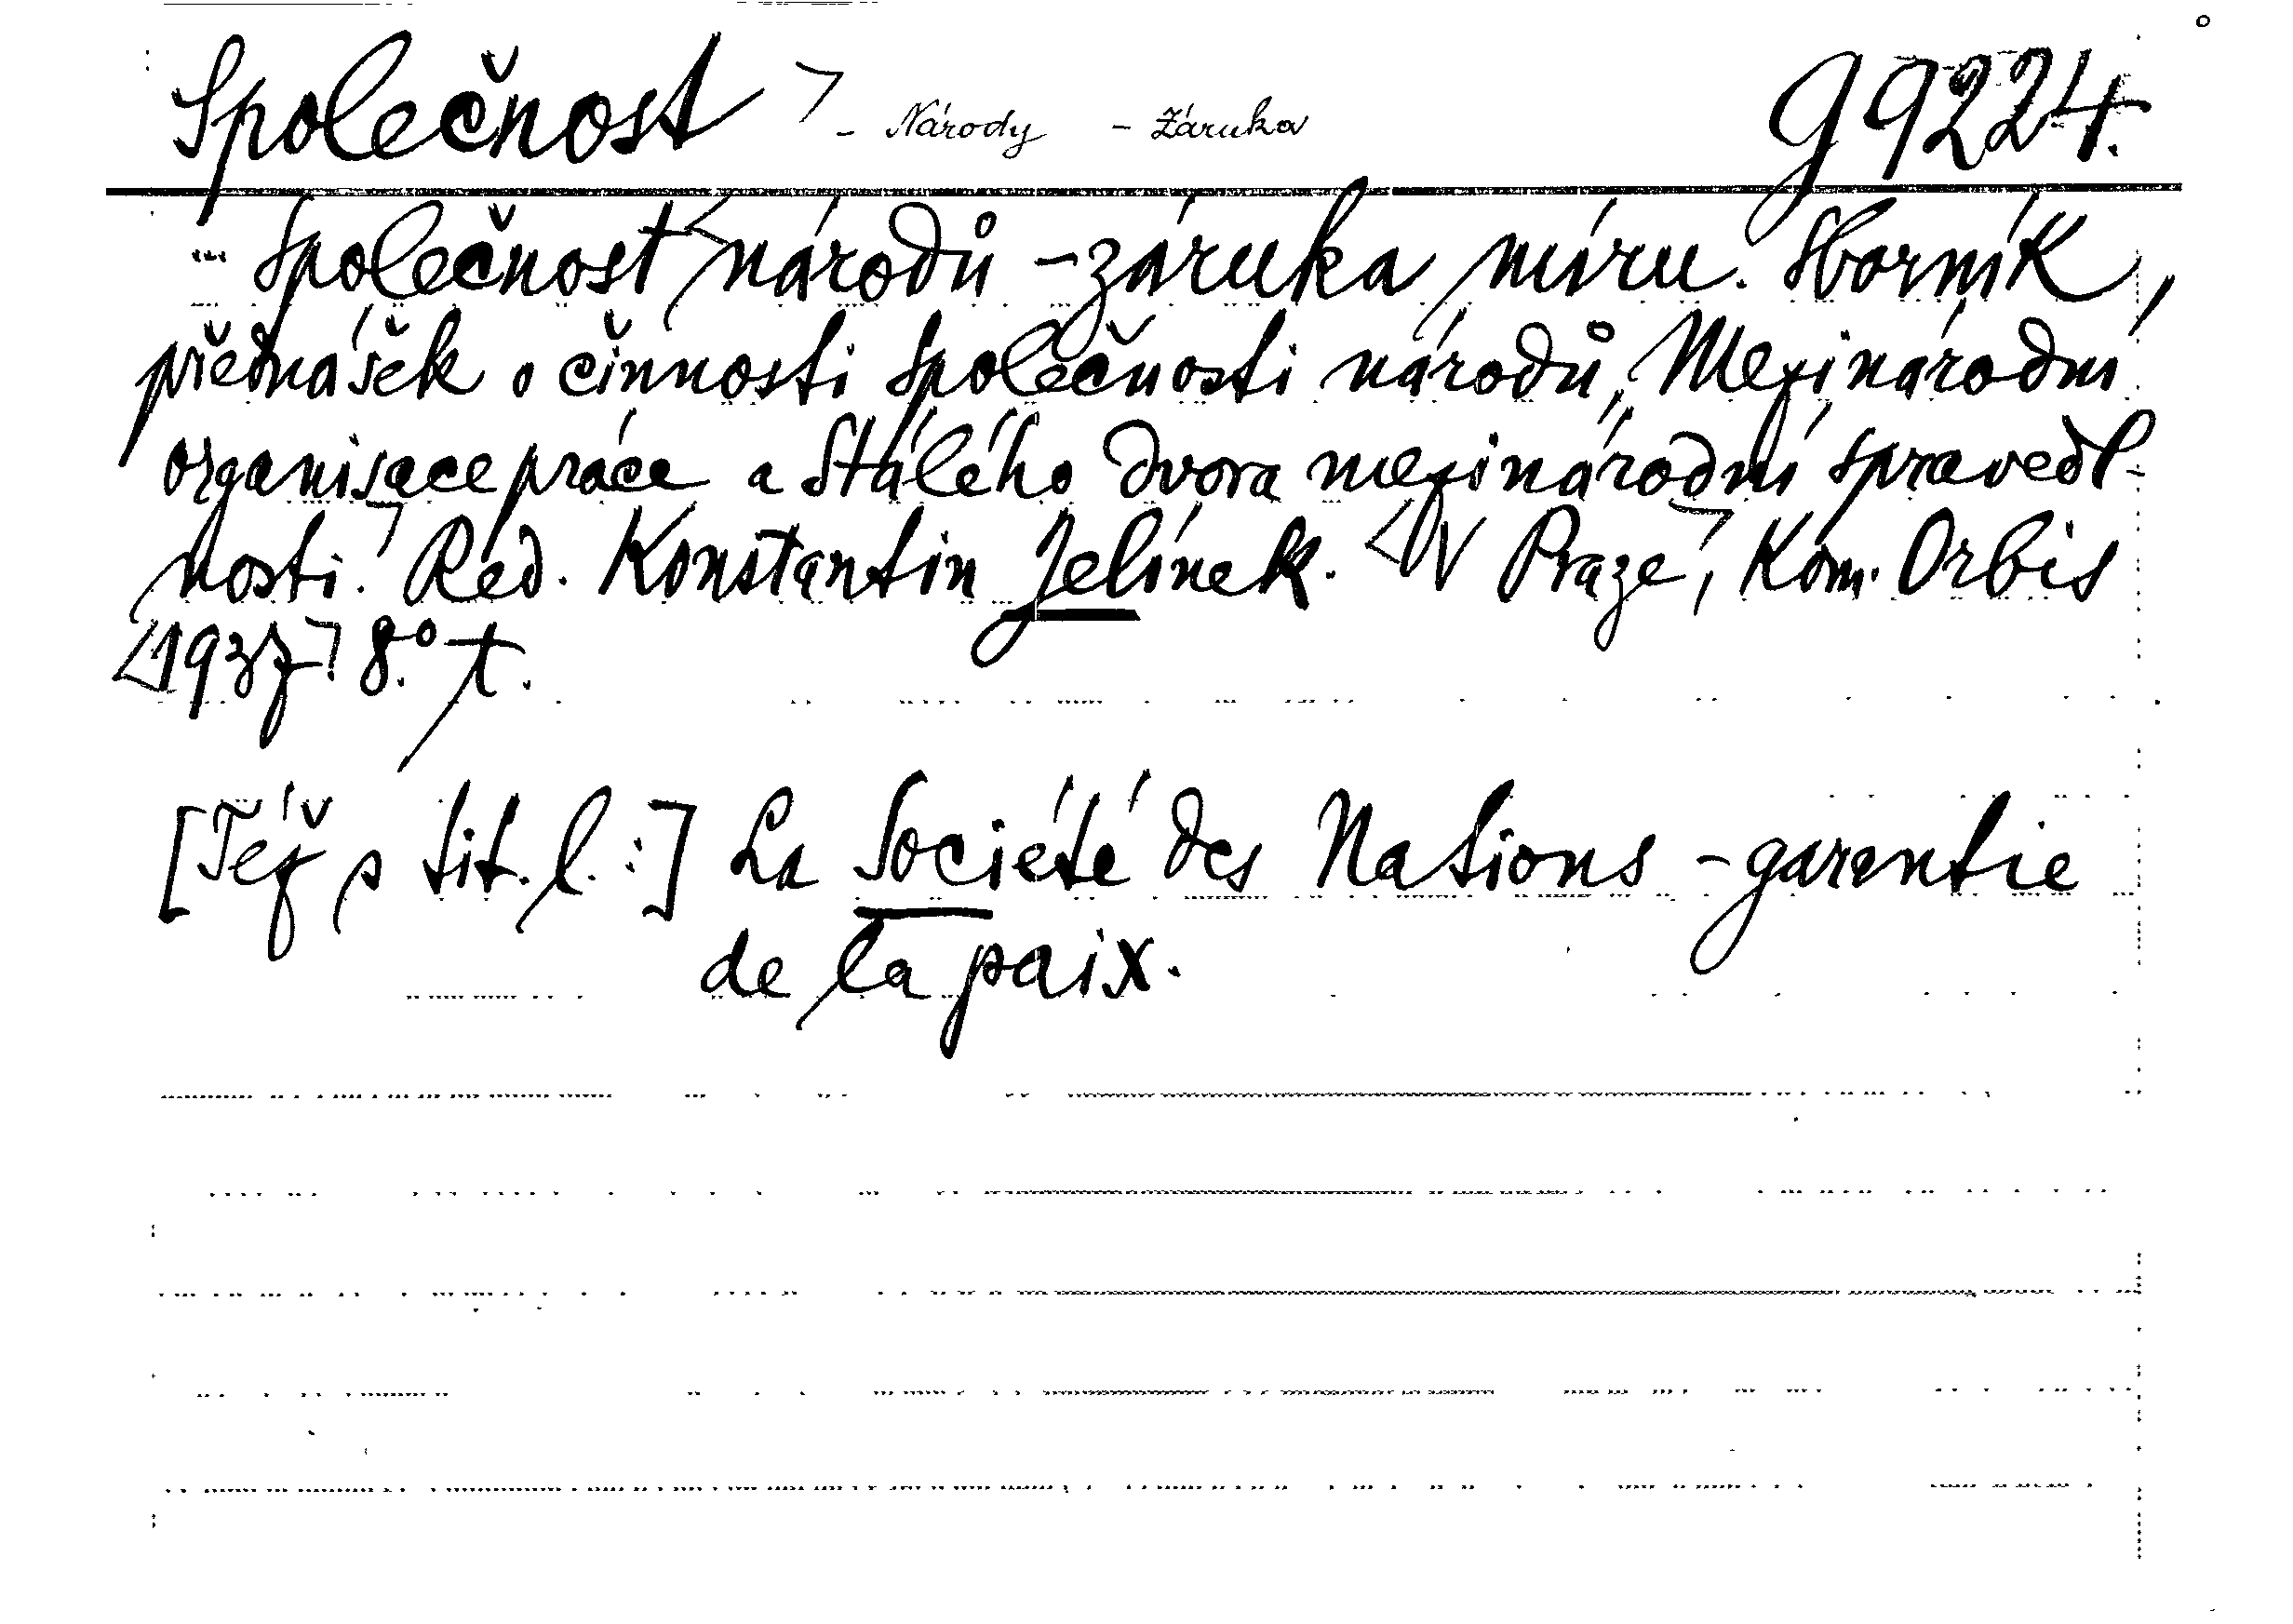 Společnost - Národy - Záruka g 9224.
- Společnost národů - záruka míru. Sborník
přednášek o činnosti Společnosti národů, Mezinárodní
organisace práce a Stálého dvora mezinárodní spravedl-
nosti. Red. Konstantin Jelínek. V Praze, Kom. Orbis
1937 8.° t.
[Též s tit. l. :] La Société des Nations - garantie
de la paix.